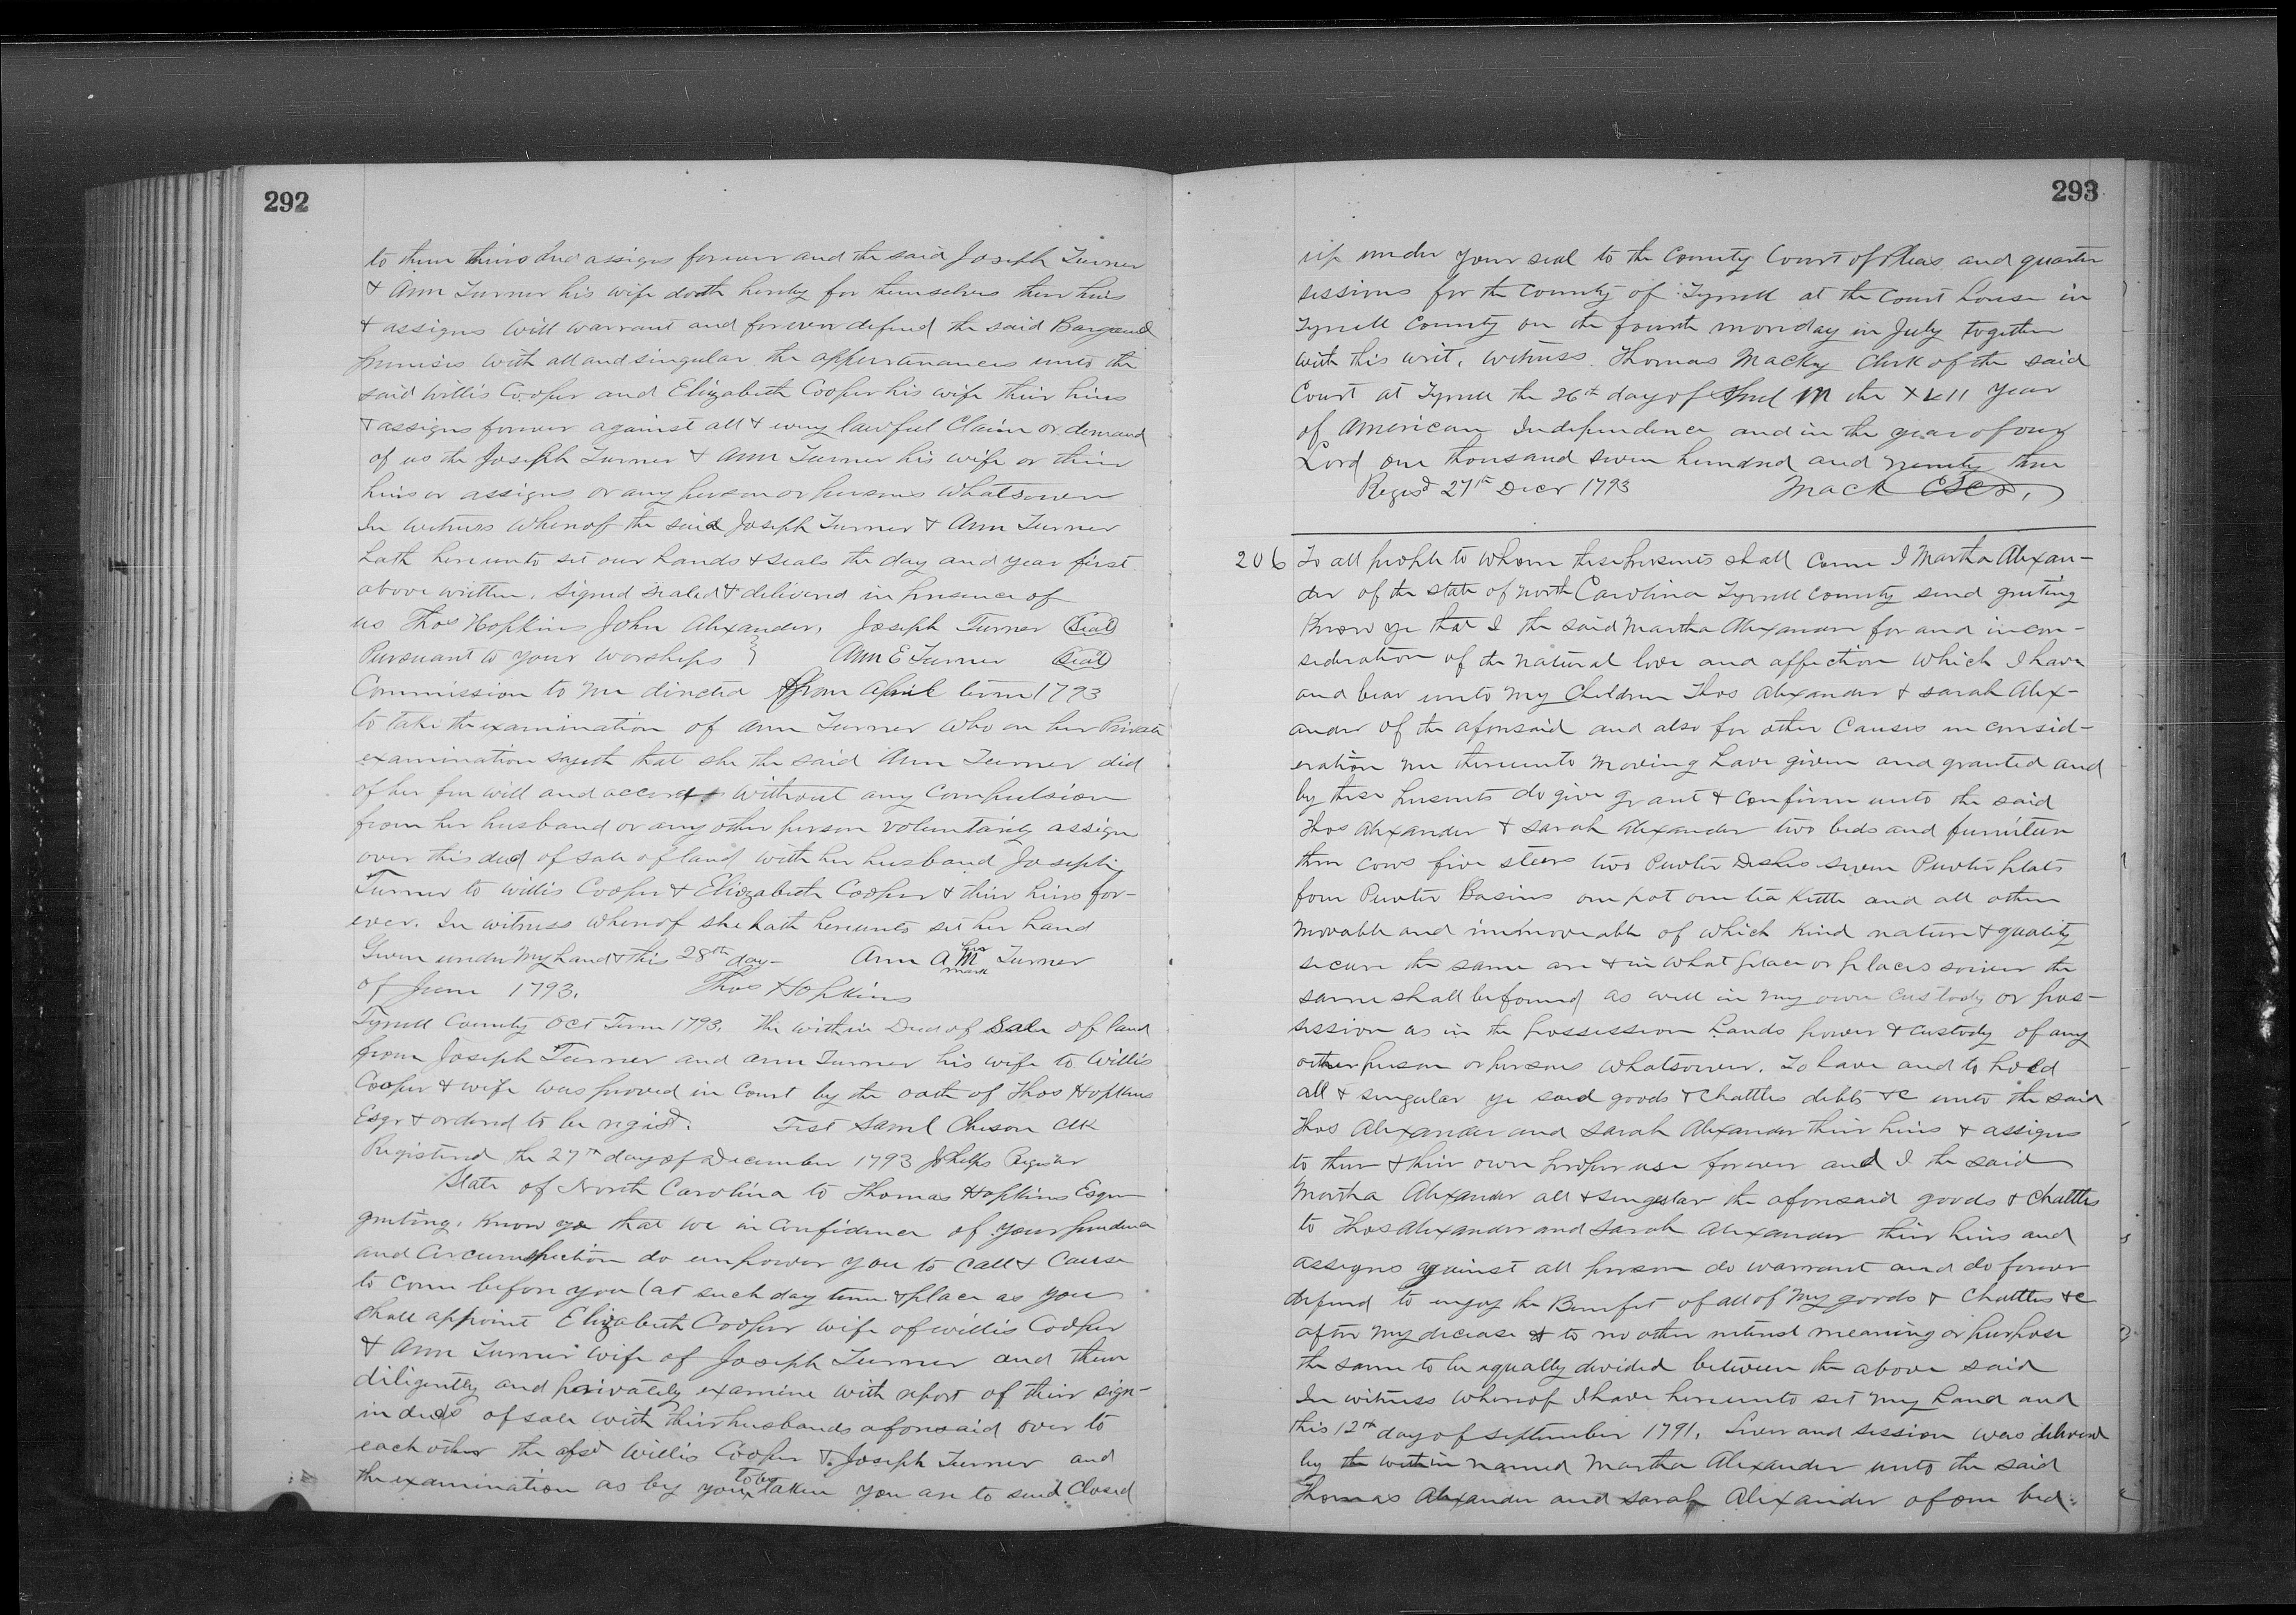 292
to them theirs and assigns forever and the said Joseph Turner
& Ann Turner his wife doth hereby for themselves their heirs
& assigns will warrant and forever defend the said Bargained
premises with all and singular the appurtenances unto the
said Willis Cooper and Elizabeth Cooper his wife their heirs
& assigns forever against all & every lawful Claim or demand
of us the Joseph Turner & Ann Turner his wife or their
heirs or assigns or any person or persons whatsoever
In witness whereof the said Joseph Turner & Ann Turner
hath hereunto set our hands & seals the day and year first
above written. Signed sealed & delivered in presence of
us Thos Hopkins John Alexander. Joseph Turner Seal
Pursuant to your worships } Ann E Turner Seal
Commission to me directed from April term 1793
to take the examination of Ann Turner who on her Private
examination sayeth that she the said Ann Turner did
of her free will and accord without any Compulsion
from her husband or any other person voluntarily assign
over this deed of sale of land with her husband Joseph
Turner to Willis Cooper & Elizabeth Cooper & their heirs for-
ever. In witness whereof she hath hereunto set her hand
Given under my hand & this 28th day- Ann A her M mark Turner
of June 1793. Thos Hopkins
Tyrrell County Oct Term 1793. The within Deed of Sale of land
from Joseph Turner and Ann Turner his wife to Willis
Cooper & wife was proved in Court by the oath of Thos Hopkins
Esqr & ordered to be regisd. Test Saml Cheson Clk
Registered the 27th day of December 1793 J Phelps Register
State of North Carolina to Thomas Hopkins Esqr
greeting. Know ye that we in Confidence of your prudence
and Circumspection do empower you to call & Cause
to come before you (at such day time & place as you
shall appoint Elizabeth Cooper wife of Willis Cooper
& Ann Turner wife of Joseph Turner and them
diligently and privately examine with report of their sign-
in deeds of sale with their husbands aforesaid over to
each other the afsd Willis Cooper & Joseph Turner and
the examination as by you to be taken you are to send Closed
293
up under your seal to the County Court of Pleas and quarter
sessions for the County of Tyrrell at the Court house in
Tyrrell County on the fourth monday in July together
with this writ. Witness Thomas Macky Clerk of the said
Court at Tyrrell the 26th day of April in the year
of American Independence and in the year of our
Lord one thousand seven hundred and ninety three
Regisd 27th Decr 1793 Mack
206 To all people to whom these presents shall come I Martha Alexan-
der of the state of North Carolina Tyrrell County send greeting
Know ye that I the said Martha Alexander for and in con-
sideration of the natural love and affection which I have
and bear unto my Children Thos Alexander & Sarah Alex-
ander of the aforesaid and also for other Causes in consid-
eration me thereunto moving have given and granted and
by these presents do give grant & confirm unto the said
Thos Alexander & Sarah Alexander two beds and furniture
three cows five steers two Pewter Dishes seven Pewter plats
four Pewter Basins one pot one tea Kettle and all other
movable and immoveable of which kind nature & quality
secure the same are & in what place or places soever the
same shall be found as well in my own custody or pos-
session as in the possession hands power & custody of any
other person or persons whatsoever. To have and to hold
all & singular ye said goods & chattles debts &c unto the said
Thos Alexander and Sarah Alexander their heirs & assigns
to them & their own proper use forever and I the said
Martha Alexander all & singular the aforesaid goods & chattles
to Thos Alexander and Sarah Alexander their heirs and
assigns against all person do warrant and do forever
defend to enjoy the Benefit of all of my goods & Chattles &c
after my decease & to no other intend meaning or purpose
the same to be equally divided between the above said
In witness whereof I have hereunto set my hand and
this 12th day of September 1791. and session was delivered
by the within named Martha Alexander unto the said
Thomas Alexander and Sarah Alexander of one bed